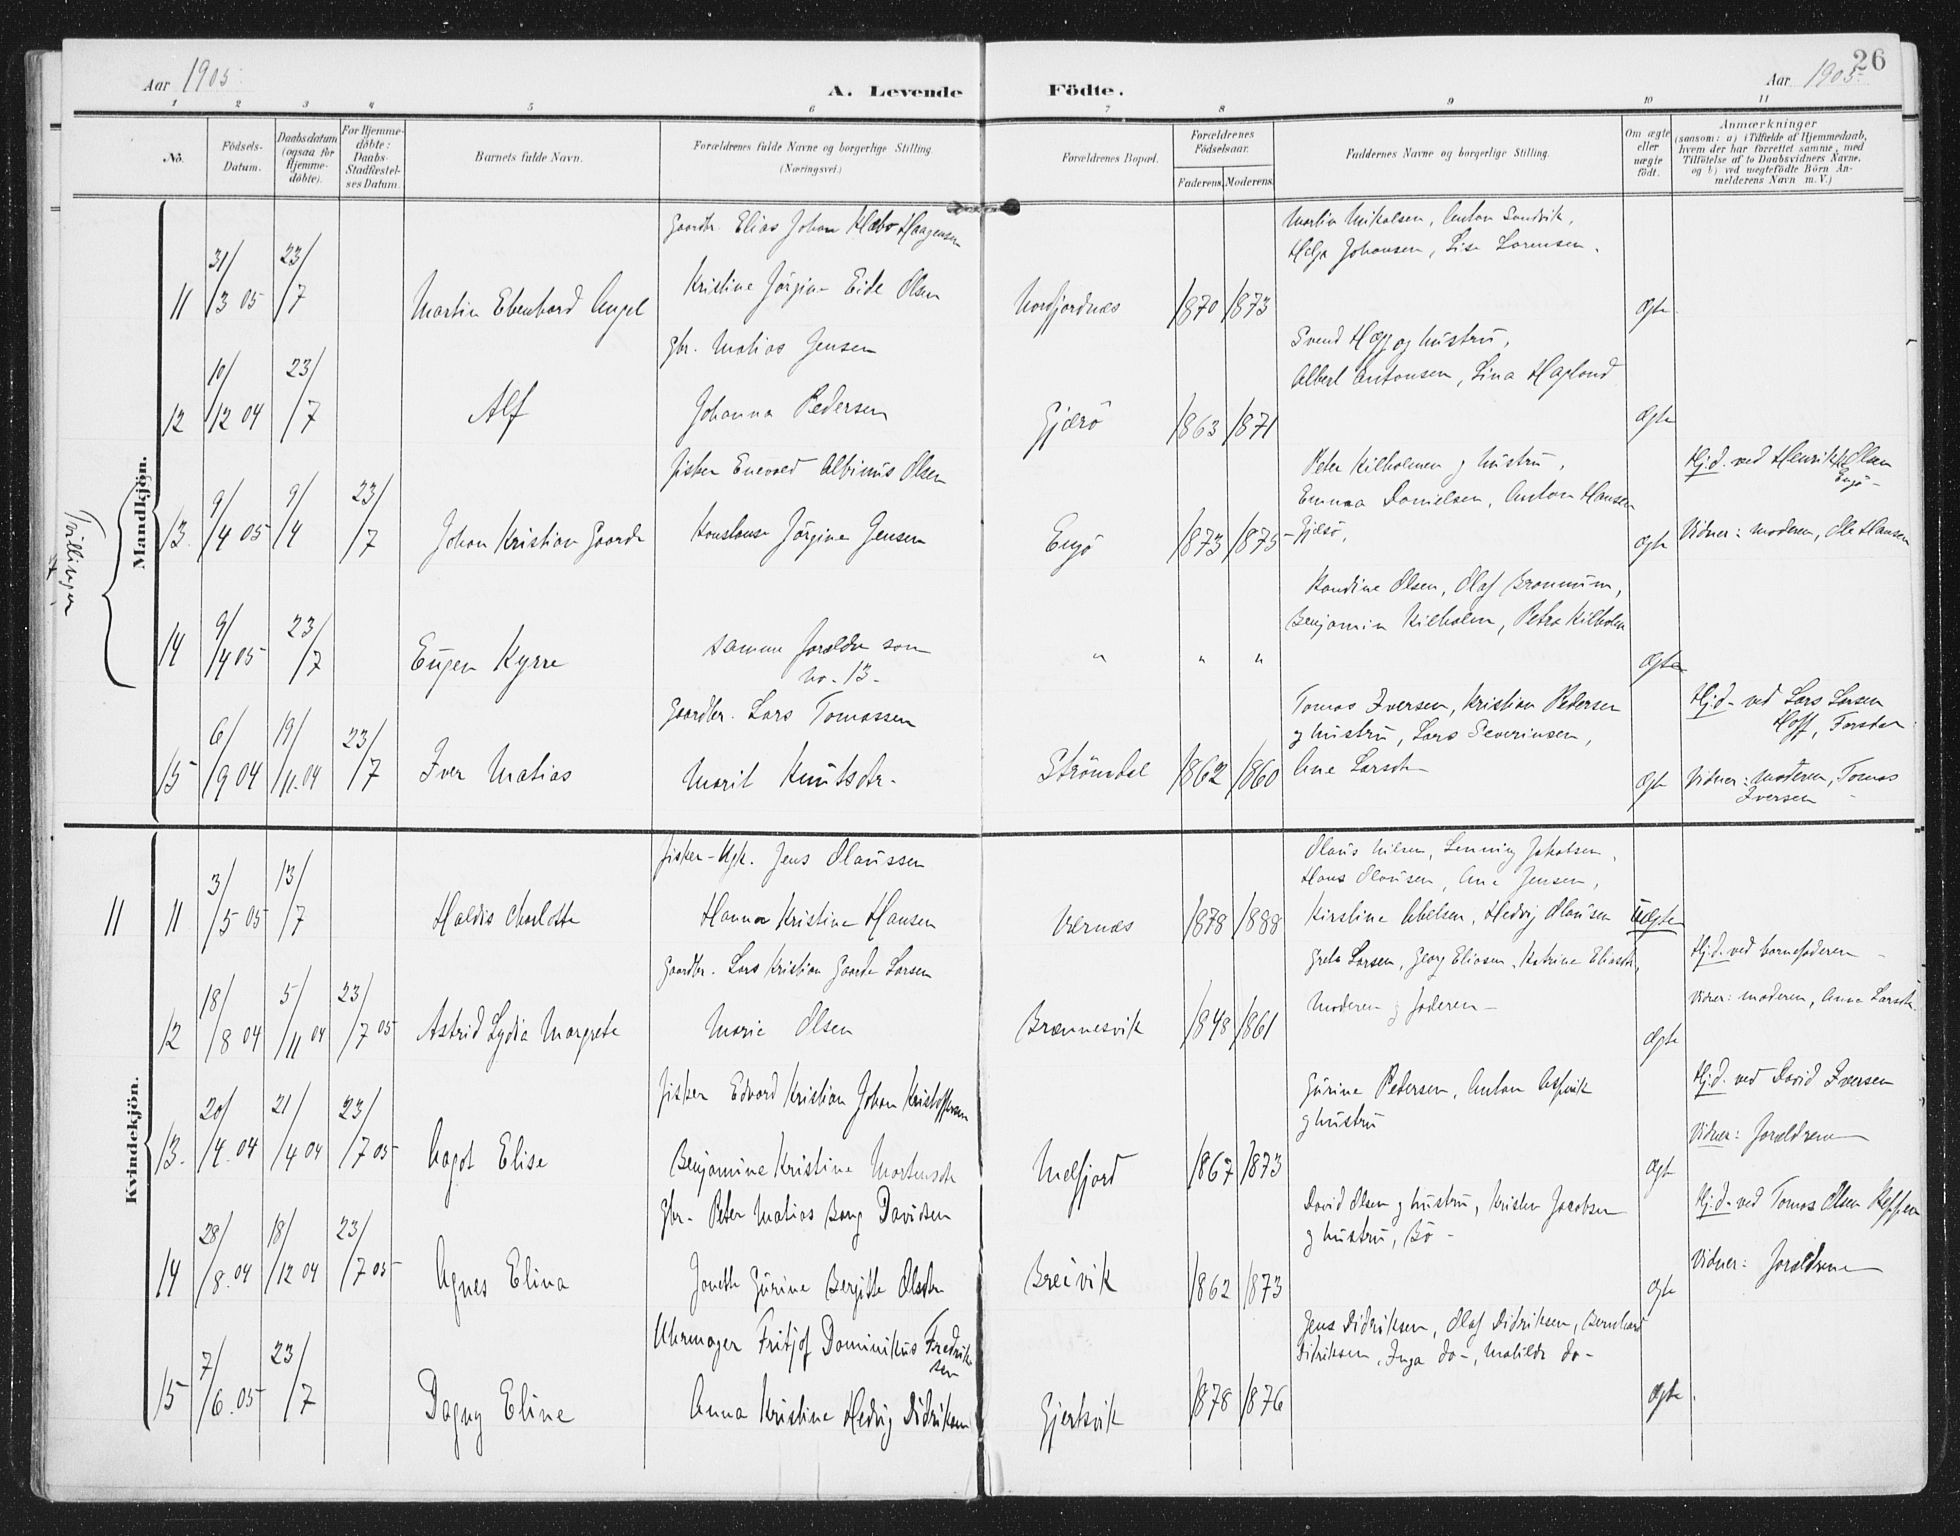 Aar 1905
A. Levende Födte.
Aar 1905
26
1 2 3 4 5 6 7 8 9 10 11
No.
Födsels-Datum.
Daabsdatum (ogsaa for Hjemme-döbte).
For Hjemme-döbte: Daabs-Stadfæstel-ses Datum.
Barnets fulde Navn.
Forældrenes fulde Navne og borgerlige Stilling. (Næringsvei.)
Forældrenes Bopæl.
Forældrenes Födselsaar.
Faderens. Moderens.
Faddernes Navne og borgerlige Stilling.
Om ægte eller uægte födt.
Anmærkninger
(saasom: a) i Tilfælde af Hjemmedaab,
hvem der har forrettet samme, med
Tilföielse af to Daabsvidners Navne,
og b) ved uægtefödte Börn An-
melderens Navn m. V.)
Mandkjön.
Tvillinger
Gaardbr. Elias Johan Hæbo Haagensen
Martin Mikalsen, Anton Sandvik,
Helga Johansen, Lise Larensen.
11 31/3 05 23/7 Martin Ebenhard Angel Kristine Jörgine Eide Olsen Nordfjordnæs 1870 1873 Ægte
Gbr. Matias Jensen
Svend Hæg og hustru,
Albert Antonsen, Lina Haglund
12 10/12 04 23/7 Alf Johanna Pedersen Gjærö 1863 1871 Ægte
Fisker Enevold Albinus Olsen
Peter Kilholmen og hustru,
Emma Danielsen, Anton Hansen
Hj.d. ved Henrik Olsen
Engö
13. 9/4 05 9/4 23/7 Johan Kristian Gaarde Konstanse Jörgine Jensen Engö 1873 1875 Gjærö, Ægte Vidner: moderen, Ole Hansen
Kandine Olsen, Olaf Brammum,
Benjamin Kilholm, Petra Kilholm
14 9/4 05 23/7 Eugen Kyrre samme forældre som
no. 13 - " " " Ægte
Gaardbr. Lars Tomassen
Tomas Iversen, Kristian Pedersen
og hustru, Lars Severinsen,
Hj.d. ved Lars Larsen
Hoff, Forsdal
15 6/9 04 19/11.04 23/7 Iver Matias Marit Knutsdtr. Strömdal 1862 1860 Ane Larsdtr Ægte Vidner: moderen, Tomas
Iversen
Kvindekjön.
Fisker-Ugk. Jens Olaussen
Olaus Nilsen, Lenning Jakobsen,
Hans Olausen, Ane Jensen,
11 11 3/5 05 13/7 Haldis Charlotte Hanna Kristine Hansen Værnæs 1878 1888 Kirstine Abelsen, Hedvig Olausen Uægte
Gaardbr. Lars Kristian Gaarde Larsen
Grete Larsen, Georg Eliasen, Katrine Eliasdtr,
Hj.d. ved barnefaderen
12 18/8 04 5/11 04 23/7 05 Astrid Lydia Margrete Marie Olsen Brænnesvik 1848 1861 Moderen og faderen - Ægte Vidner: moderen, Anna Larsdtr
Fisker Edvard Kristian Johan Kristoffersen
Gurine Petersen, Anton Aspvik
og hustru
Hj.d. ved David Iversen
13. 20/4.04 21/4 04 23/7 05 Aagot Elise Benjamine Kristine Mortensdtr Melfjord 1867 1873 Ægte Vidner: Forældrene
Gbr. Peter Matias Bang Davidsen
David Olsen og hustru, Kristen Jacobsen
og hustru, Bö -
Hj.d. ved Tomas Olsen Reppen
14 28/8.04 18/12 04 23/7 05 Agnes Elina Jonette Gurine Bergitte Olsdtr Breivik 1862 1873 Ægte Vidner: Forældrene
Uhrmager Fritjof Dominikus Fredrik-
sen
Jens Didriksen, Olaf Didriksen, Bernhard
Didriksen, Inga do-, Matilde do-
15 7/6.05 23/7 Dagny Eline Anna Kristine Hedvig Didriksen Gjertsvik 1878 1876 Ægte